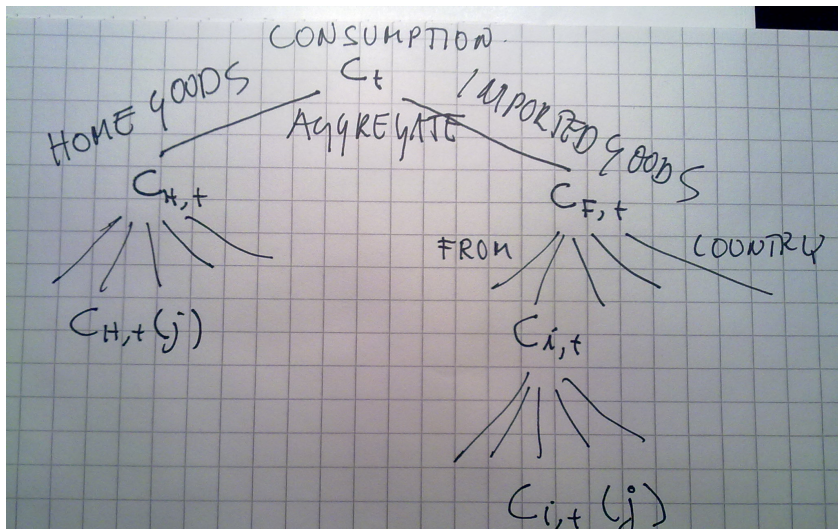 CONSUMPTION.
C_t
HOME GOODS
AGGREGATE
IMPORTED GOODS
C_{H,t}
C_{F,t}
FROM
COUNTRY
C_{H,t}(j)
C_{i,t}
C_{i,t}(j)